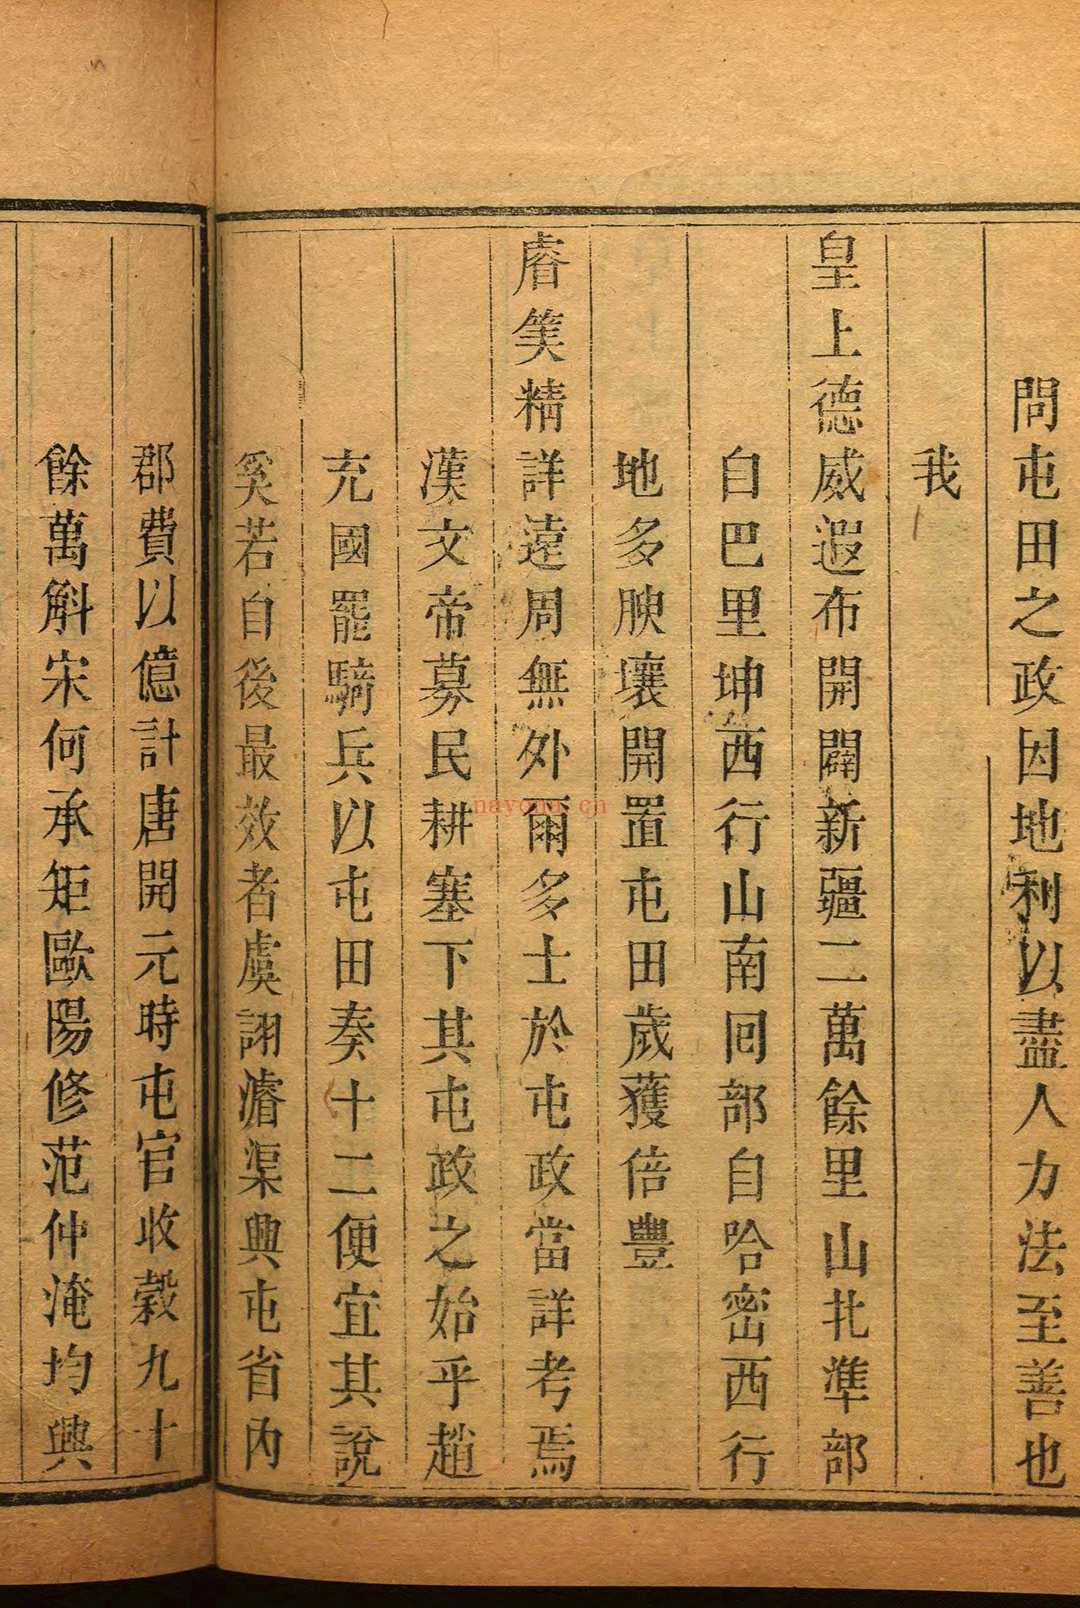 問屯田之政因地利以盡人力法至善也
我
皇上德威遐布開闢新疆二萬餘里山北準部
自巴里坤西行山南回部自哈密西行
地多腴壤開置屯田歲獲倍豐
睿筭精詳遠周無外爾多士於屯政當詳考焉
漢文帝募民耕塞下其屯政之始乎趙
充國罷騎兵以屯田奏十二便宜其說
奚若自後最效者虞詡濬渠興屯省內
郡費以億計唐開元時屯官收穀九十
餘萬斛宋何承矩歐陽修范仲淹均興
nayona.cn